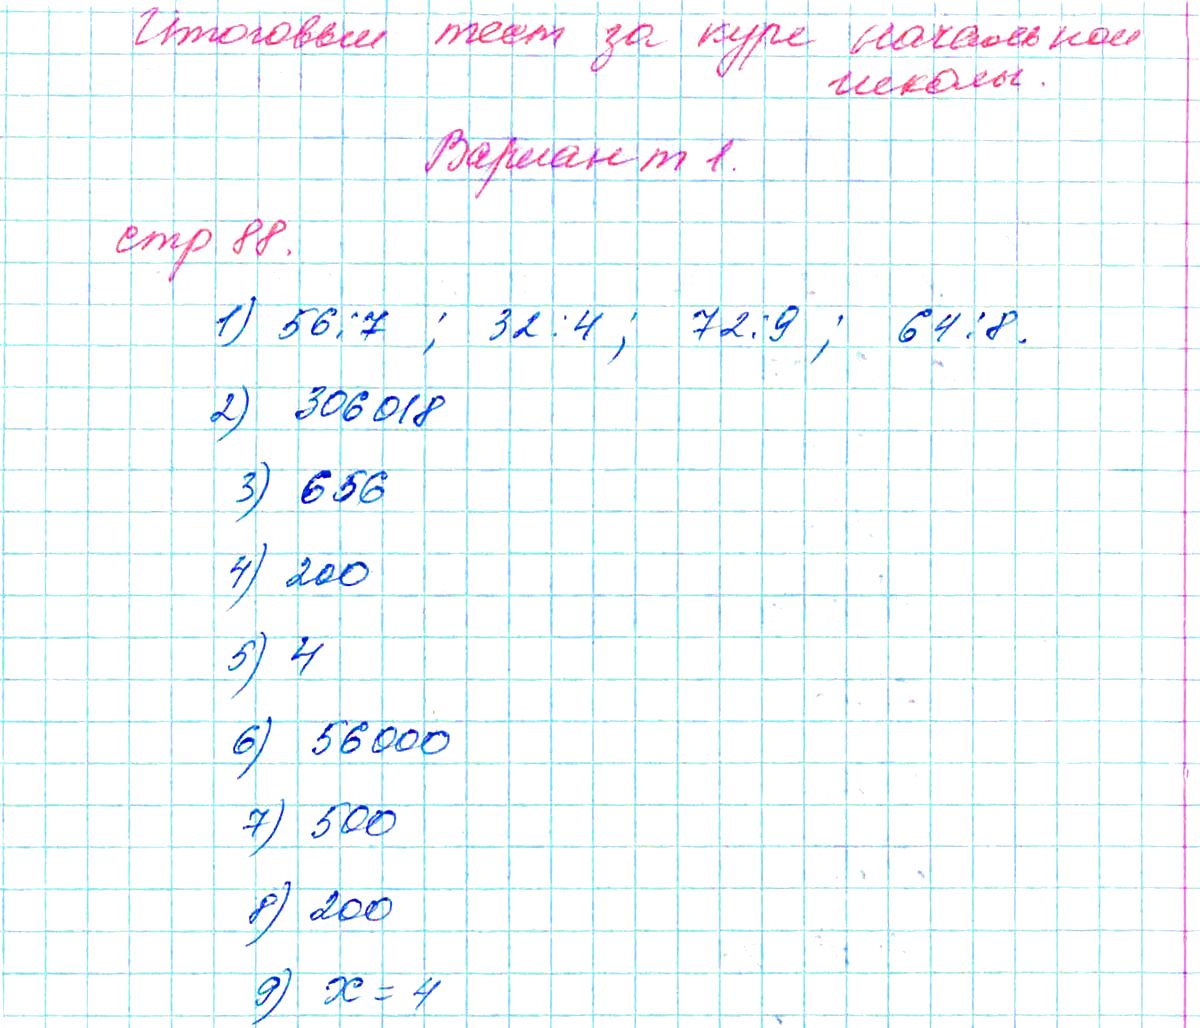 Итоговый тест за курс начальной
школы.
Вариант 1.
стр 88.
1) 56:7 ; 32:4 ; 72:9 ; 64:8.
2) 306018
3) 656
4) 200
5) 4
6) 56000
7) 500
8) 200
9) x = 4